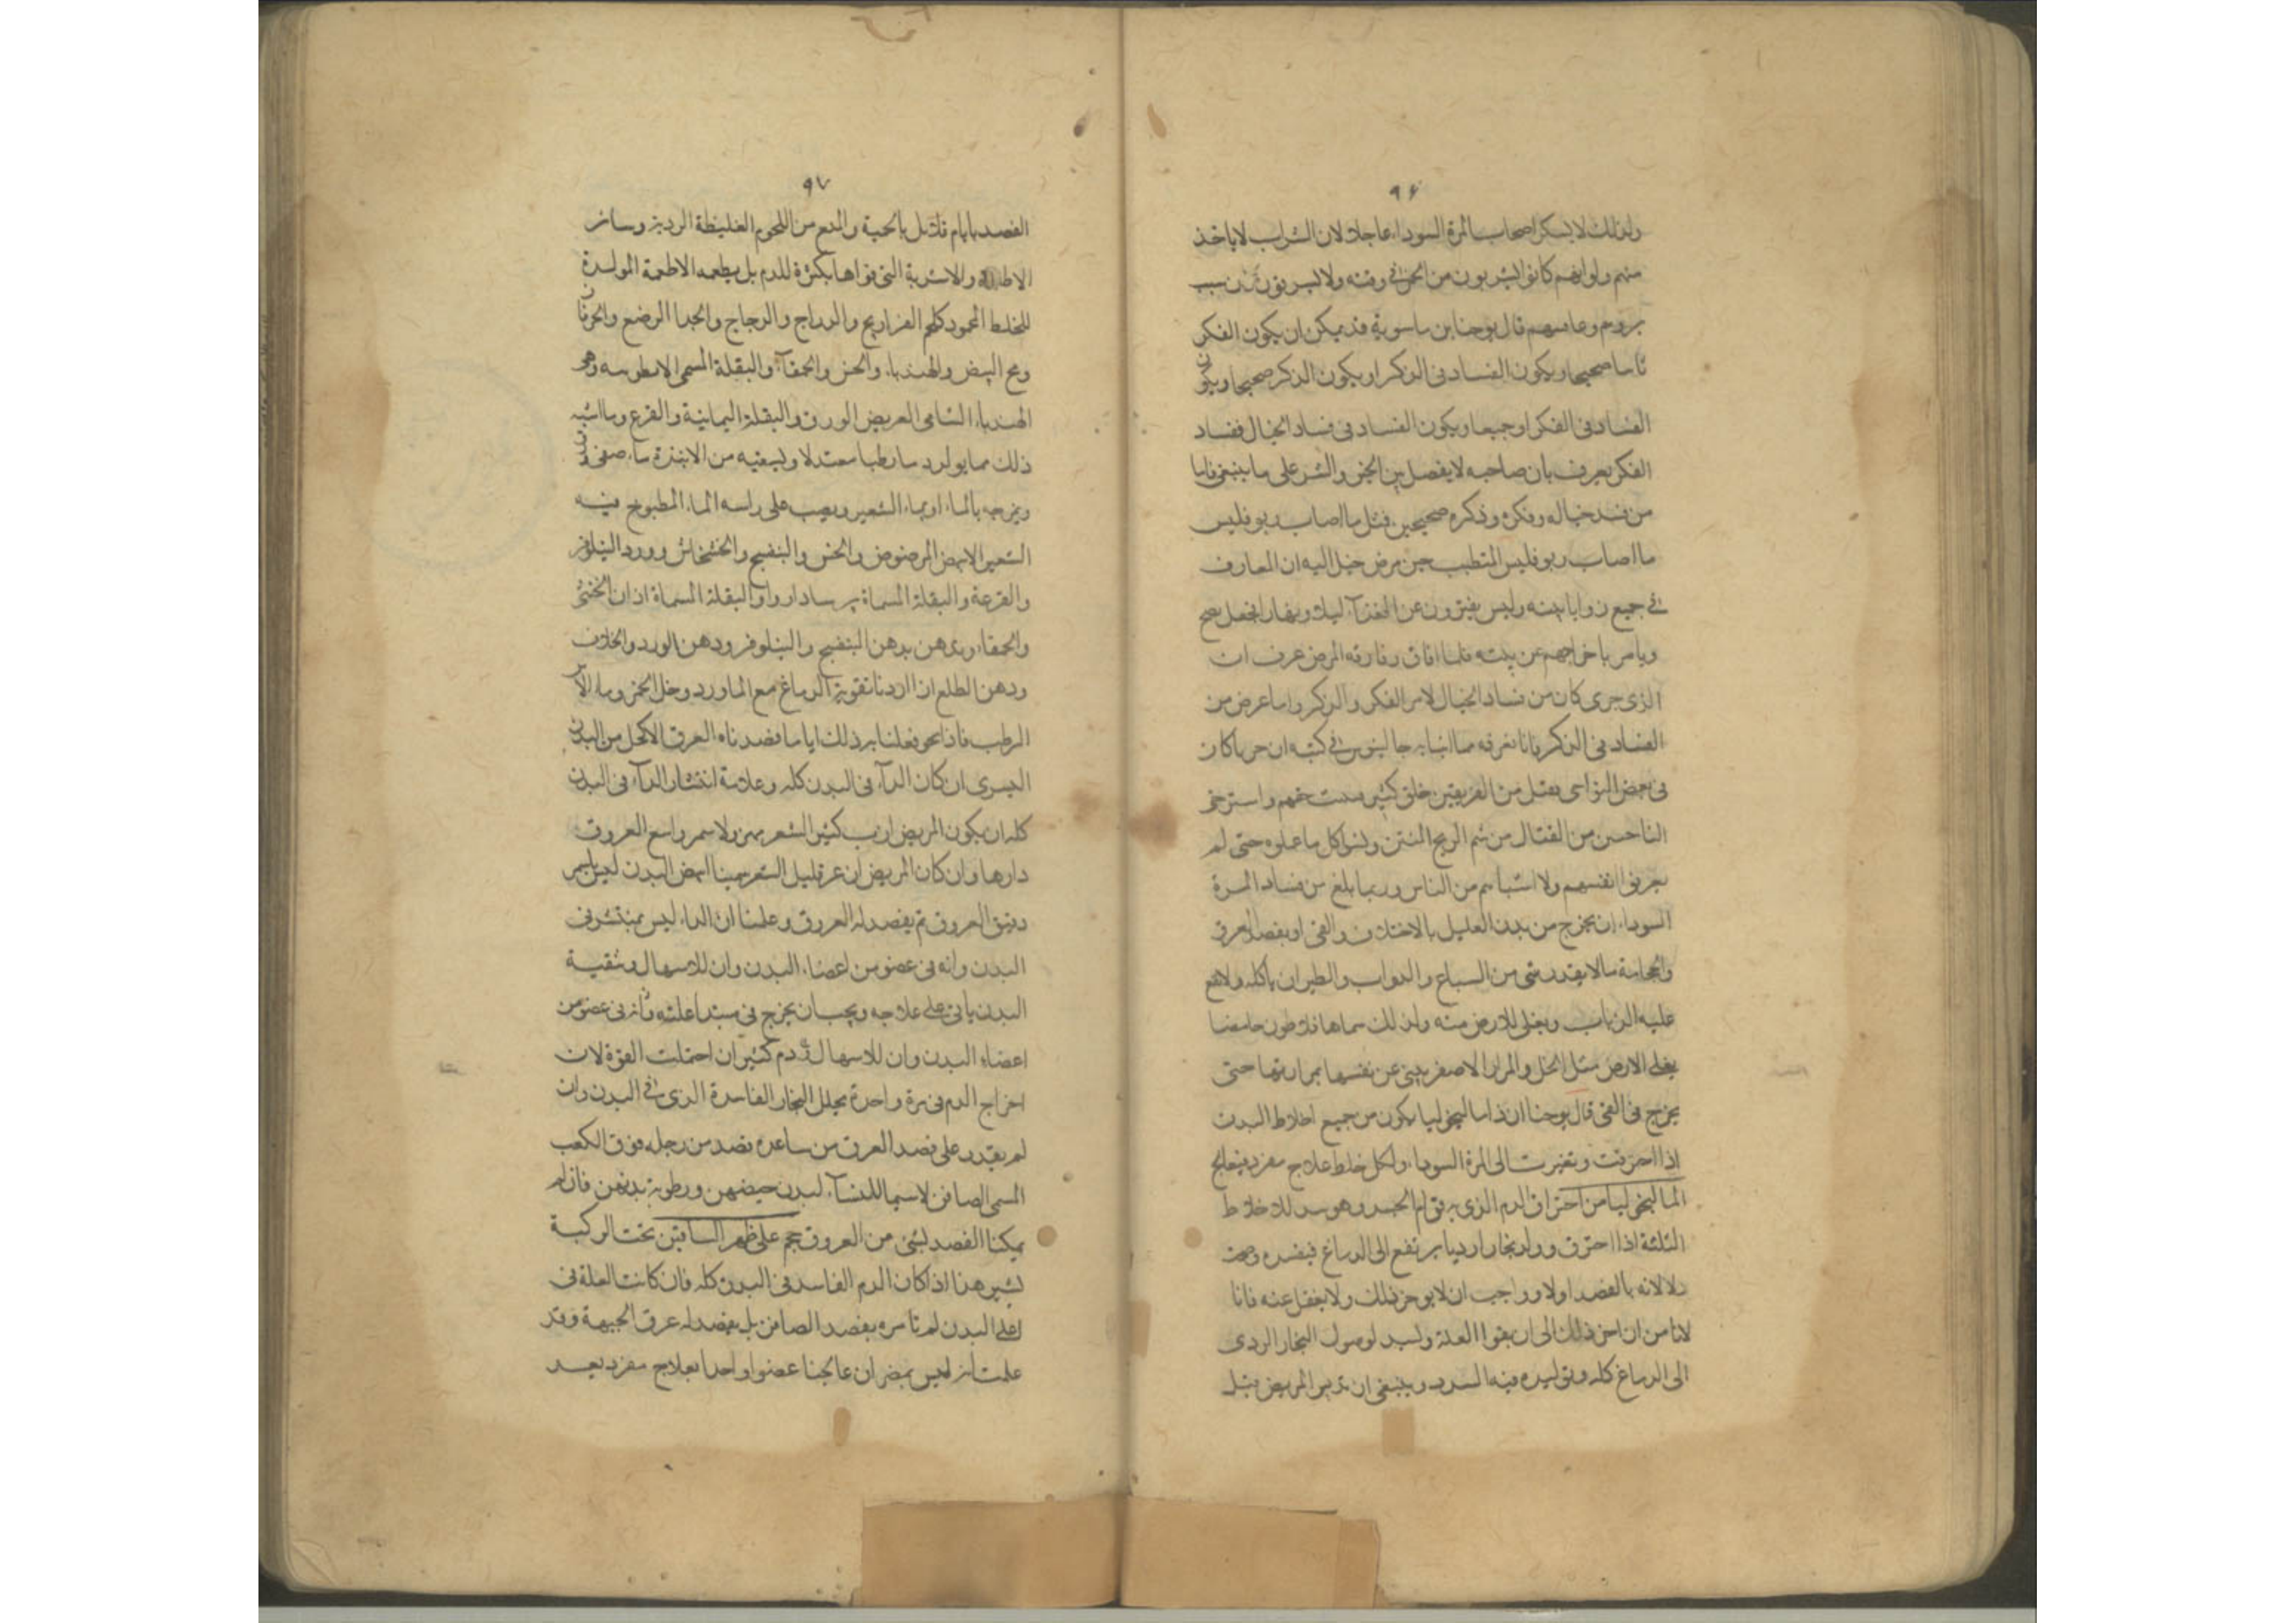 ٩٦
ولذلك لا يسكر اصحاب المرة السوداء عاجلا لان الشراب لا ياخذ
منهم ولو انهم كانوا يشربون من الخمر في وقته ولا
قال يوحنا بن ماسوية قد يمكن ان يكون الفكر
صحيحا ويكون الفساد فى الذكر او يكون الذكر صحيحا ويكون
الفساد فى الفكر او جميعا ويكون الفساد فى فساد الخيال ففساد
الفكر يعرف بان صاحبه لا يفصل بين الخير والشر على ما ينبغى فاما
من فسد خياله وفكره وذكره صحيحين فمثل ما اصاب ربوفليس
ما اصاب ربوفليس المتطبب حين مرض خيل اليه ان المعازف
في جميع زوايا بيته وليس يفترون عن الغنآء ليلا ونهارا فجعل يصيح
ويامر باخراجهم عن بيته فلما افاق وفارقه المرض عرف ان
الذى جرى كان من فساد الخيال لا من الفكر والذكر واما عرض من
الفساد فى الذكر فانا نعرفه مما انبا به جالينوس في كتبه ان حربا كان
فى بعض النواحى فقتل من الفريقين خلق كثير
من القتال من شم الريح المنتن ونسوا كل ما علموه حتى لم
يعرفوا انفسهم ولا من الناس وربما بلغ من فساد المرة
السوداء ان يخرج من بدن العليل بالاختلاف والقى او بفصد العرق
والحجامة ما لا يقدر شى من السباع والدواب والطير ان ياكله ولا يقع
عليه الذباب ويغلى للارض منه ولذلك سماها فلاطون حامضا
يغلى الارض مثل الخل والمرار الاصفر ينبى عن نفسها بمرارتها حتى
يخرج فى القى قال يوحنا ان ذا ماليخوليا يكون من جميع اخلاط البدن
اذا احترقت وتغيرت الى المرة السوداء ولكل خلط علاج مفرد فيعالج
الماليخوليا من احتراق الدم الذى به قوام الجسد وهو للاخلاط
الثلثة اذا احترق وولد بخارا رديا يرتفع الى الدماغ فيفسده
بالفصد اولا وواجب ان لا يوخر ذلك ولا يغفل عنه فانا
لا نامن ان اخر ذلك الى ان يقوا العلة لوصول البخار الردى
الى الدماغ كله وتوليده فيه السدد وينبغى ان تدبر المريض قبل
٩٧
الفصد بايام قلائل بالحمية والمنع من اللحوم الغليظة الردية وسائر
الاطعمة والاشربة التى قواها بكثرة للدم بل يطعمه الاطعمة المولدة
للخلط المحمود كلحم الفراريج والدراج والدجاج والجدا الرضع والخرفان
ومح البيض والهندباء والخس والحمقآء والبقلة المسمى وهو
الهندباء الشامى العريض الورق والبقلة اليمانية والقرع وما اشبه
ذلك مما يولد دما رطبا معتدلا ويسقيه من الانبذة ما صفى
ويمزجه بالماء او بماء الشعير ويصب على راسه الماء المطبوخ فيه
الشعير الابيض المرضوض والخس والبنفسج والخشخاش وورد النيلوفر
والقرعة والبقلة المسماة والبقلة المسماة اذان
والحمقاء ويدهن بدهن البنفسج والنيلوفر ودهن الورد والخلاف
ودهن الطلع ان اردنا تقوية الدماغ مع الماورد وخل الخمر وماء الآس
الرطب فاذا نحن فعلنا به ذلك اياما فصدناه العرق الاكحل من اليد
اليسرى ان كان الدآء فى البدن كله وعلامة انتشار الدآء فى البدن
كله ان يكون المريض ازب كثير الشعر مهزولا اسمر واسع العروق
دارها وان كان المريض ازعر قليل الشعر سمينا ابيض البدن ليس باسمر
دقيق العروق لم يفصد له العروق وعلمنا ان الداء ليس بمنتشر فى
البدن وانه فى عضو من اعضاء البدن وان للاسهال وتنقية
البدن ياتى على علاجه ويجب ان يخرج فى مبتدا علته فانه فى عضو من
اعضاء البدن وان للاسهال دم كثير ان احتملت القوة لان
اخراج الدم فى مرة واحدة يحلل البخار الفاسدة الذى في البدن وان
لم يقدر على فصد العرق من ساعده فصد من رجله فوق الكعب
المسمى الصافن لاسيما للنسآء لبدن حيضهن ورطوبة بدنهن فان لم
يمكننا الفصد لشئ من العروق حجم على ظهر الساقين تحت الركبة
بشبر هذا اذا كان الدم الفاسد فى البدن كله فان كانت العلة فى
اعلى البدن لم نامره بفصد الصافن بل بفصد له عرق الجبهة وقد
علمت انه ليس بمضر ان عالجنا عضوا واحدا بعلاج مفرد بعد